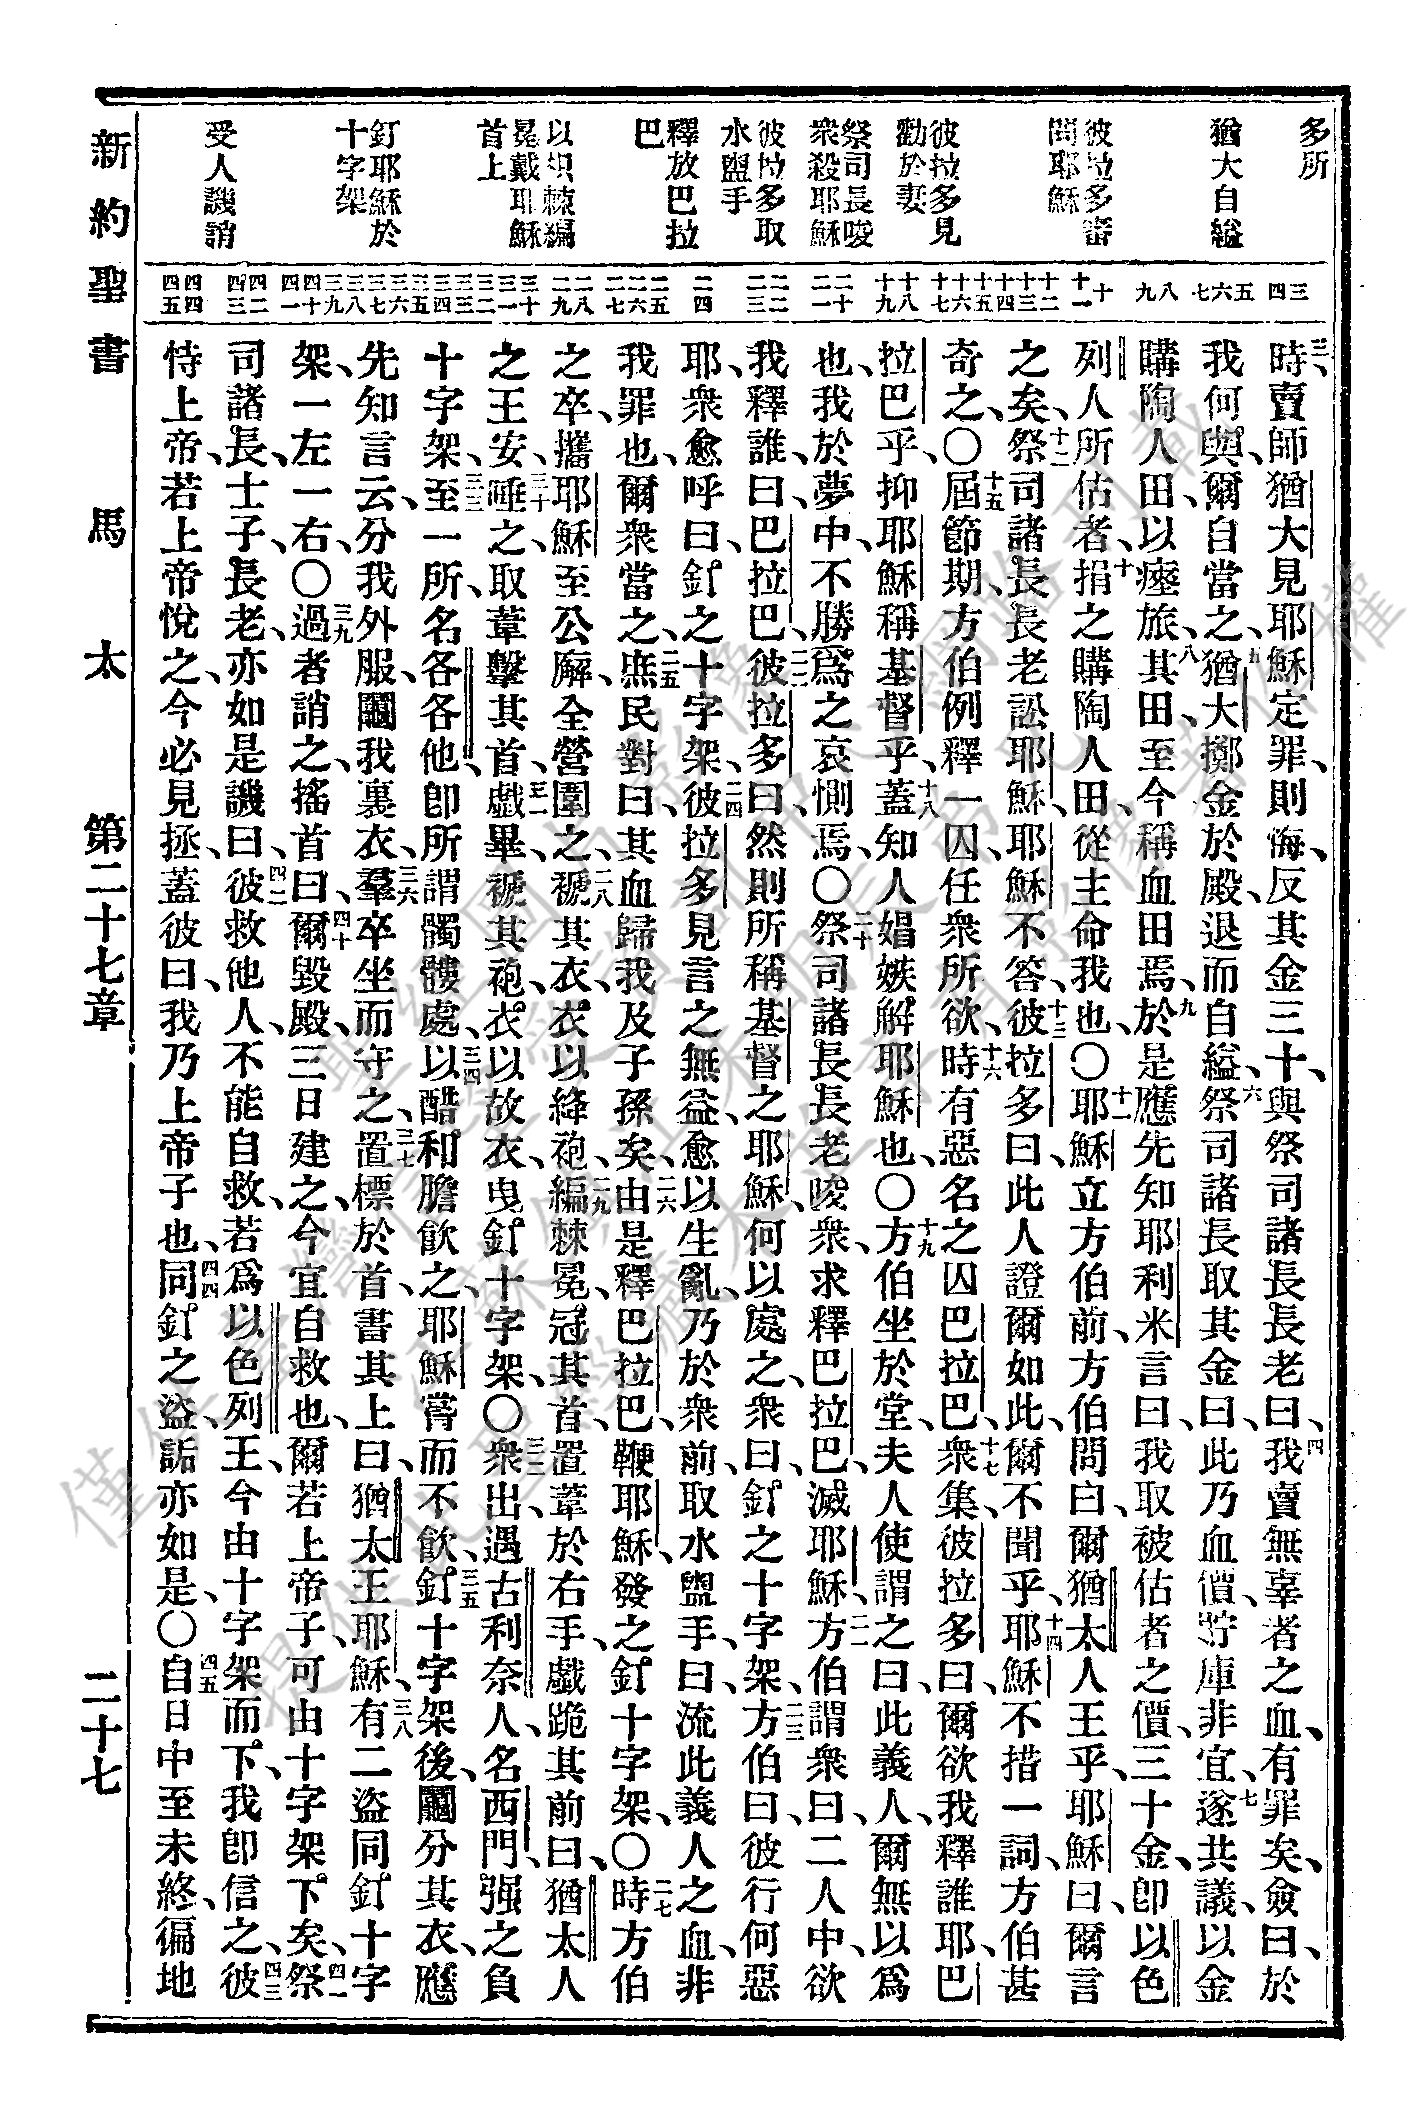 多所
猶大自縊
彼拉多審
問耶穌
彼拉多見
勸於妻
祭司長唆
衆殺耶穌
彼拉多取
水盥手
釋放巴拉
巴
以棘編
冕戴耶穌
首上
釘耶穌於
十字架
受人譏誚
三 四 五 六 七 八 九 十 十一 十二 十三 十四 十五 十六 十七 十八 十九 二十 二一 二二 二三 二四 二五 二六 二七 二八 二九 三十 三一 三二 三三 三四 三五 三六 三七 三八 三九 四十 四一 四二 四三 四四 四五
三、時賣師猶大見耶穌定罪、則悔、反其金三十、與祭司諸長長老曰、四我賣無辜者之血、有罪矣、僉曰、於
我何與、爾自當之、五猶大擲金於殿、退而自縊、六祭司諸長取其金曰、此乃血價、貯庫非宜、七遂共議、以金
購陶人田、以瘞旅、八其田、至今稱血田焉、九於是應先知耶利米言曰、我取被估者之價、三十金、卽以色
列人所估者、十捐之購陶人田、從主命我也、〇十一耶穌立方伯前、方伯問曰、爾猶太人王乎、耶穌曰、爾言
之矣、十二祭司諸長長老訟耶穌、耶穌不答、十三彼拉多曰、此人證爾如此、爾不聞乎、十四耶穌不措一詞、方伯甚
奇之、〇十五屆節期、方伯例釋一囚、任衆所欲、十六時有惡名之囚巴拉巴、十七衆集、彼拉多曰、爾欲我釋誰耶、巴
拉巴乎、抑耶穌稱基督乎、十八蓋知人娼嫉解耶穌也、〇十九方伯坐於堂、夫人使謂之曰、此義人、爾無以爲
也、我於夢中、不勝爲之哀惻焉、〇二十祭司諸長長老唆衆、求釋巴拉巴、滅耶穌、二一方伯謂衆曰、二人中、欲
我釋誰、曰、巴拉巴、二二彼拉多曰、然則所稱基督之耶穌、何以處之、衆曰、釘之十字架、二三方伯曰、彼行何惡
耶、衆愈呼曰、釘之十字架、二四彼拉多見言之無益、愈以生亂、乃於衆前、取水盥手、曰、流此義人之血、非
我罪也、爾衆當之、二五庶民對曰、其血歸我及子孫矣、二六由是釋巴拉巴、鞭耶穌、發之釘十字架、〇二七時方伯
之卒、攜耶穌至公廨、全營圍之、二八褫其衣、衣以絳袍、二九編棘冕、冠其首、置葦於右手、戲跪其前曰、猶太人
之王安、三十唾之、取葦擊其首、三一戲畢、褫其袍、衣以故衣、曳釘十字架、〇三二衆出、遇古利奈人、名西門、强之負
十字架、三三至一所、名各各他、卽所謂髑髏處、三四以醋和膽飮之、耶穌嘗而不飮、三五釘十字架後、鬮分其衣、應
先知言云、分我外服、鬮我裏衣、三六羣卒坐而守之、三七置標於首、書其上曰、猶太王耶穌、三八有二盜同釘十字
架、一左一右、〇三九過者誚之、搖首曰、四十爾毀殿、三日建之、今宜自救也、爾若上帝子、可由十字架下矣、四一祭
司諸長、士子、長老、亦如是譏曰、四二彼救他人、不能自救、若爲以色列王、今由十字架而下、我卽信之、四三彼
恃上帝、若上帝悅之、今必見拯、蓋彼曰、我乃上帝子也、四四同釘之盜、詬亦如是、〇四五自日中至未終、徧地
新約聖書 馬太 第二十七章 二十七